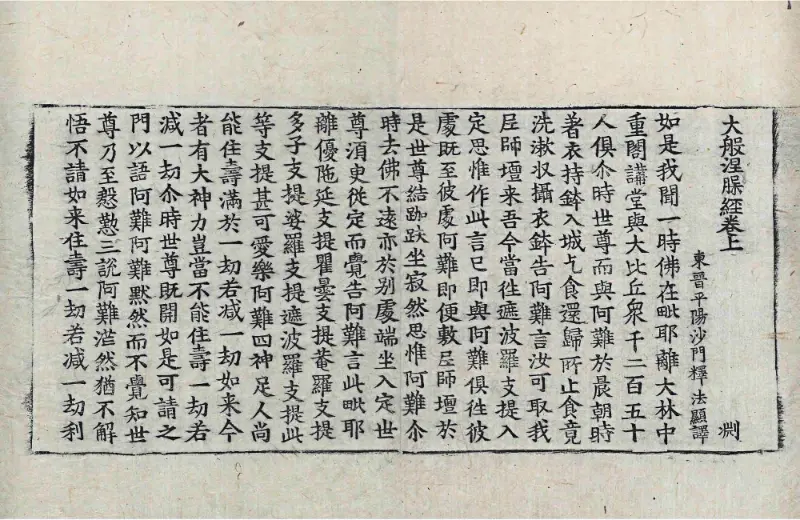 大般涅槃經卷上 渕
東晉平陽沙門釋法顯譯
如是我聞一時佛在毗耶離大林中
重閣講堂與大比丘衆千二百五十
人俱尒時世尊而與阿難於晨朝時
著衣持鉢入城乞食還歸所止食竟
洗漱収攝衣鉢告阿難言汝可取我
尼師壇来吾今當往遮波羅支提入
定思惟作此言已即與阿難俱往彼
處既至彼處阿難即便敷尼師壇於
是世尊結跏趺坐寂然思惟阿難尒
時去佛不遠亦於別處端坐入定世
尊湏臾從定而覺告阿難言此毗耶
離優陁延支提瞿曇支提菴羅支提
多子支提婆羅支提遮波羅支提此
等支提甚可愛樂阿難四神足人尚
能住壽滿於一劫若減一劫如来今
者有大神力豈當不能住壽一劫若
減一劫尒時世尊既開如是可請之
門以語阿難阿難默然而不覺知世
尊乃至慇懃三說阿難茫然猶不解
悟不請如来住壽一劫若減一劫利